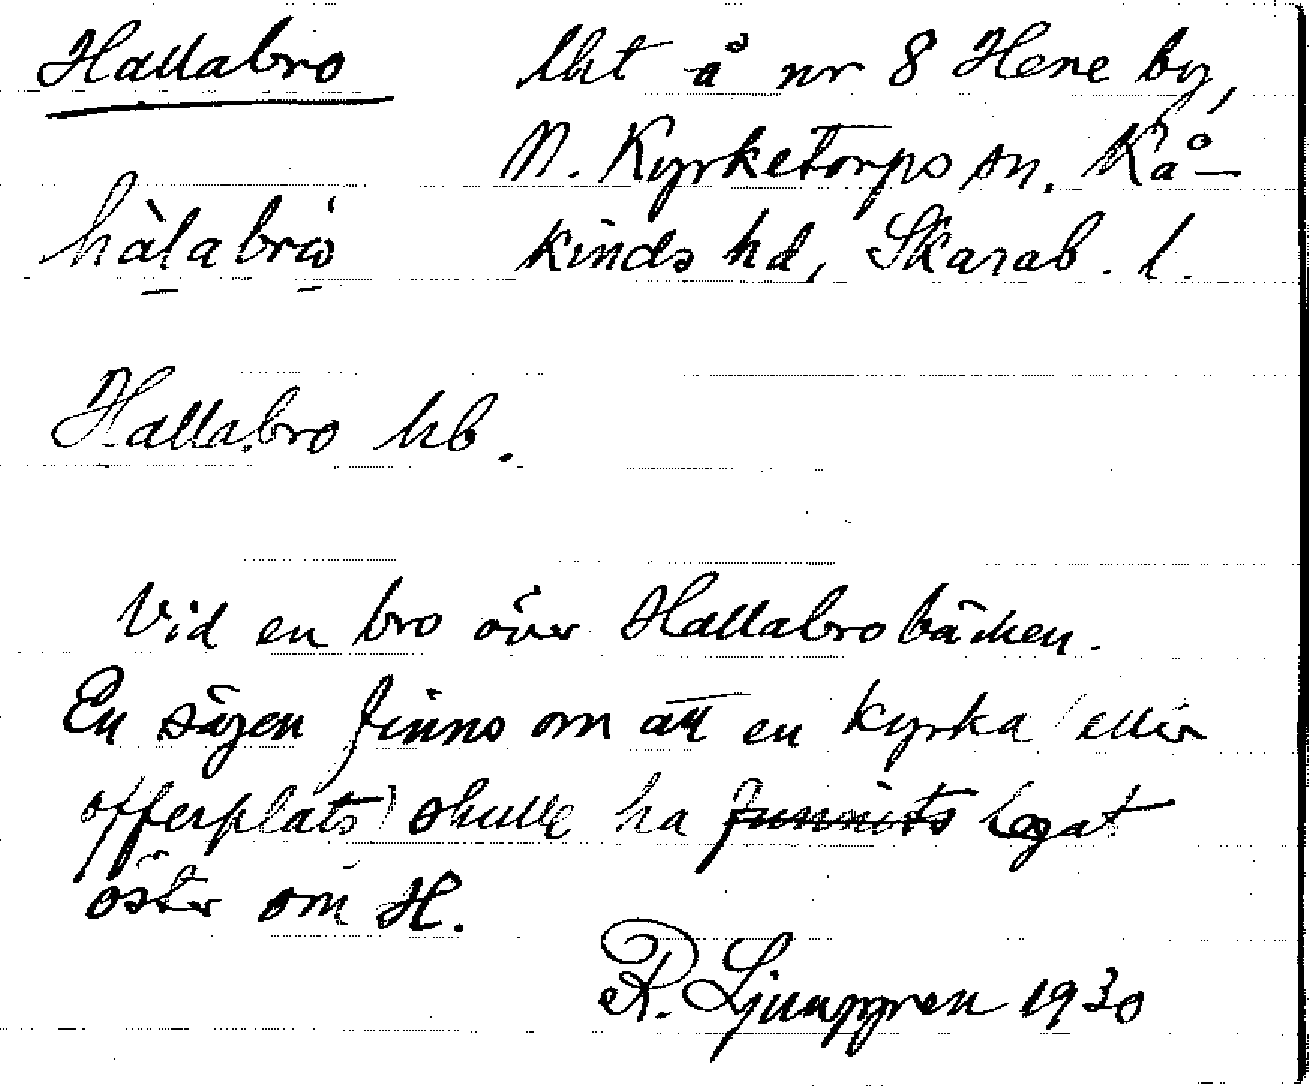 Hallabro lht å nr 8 Hene by,
N. Kyrketorps sn. Kå-
hàlabrò kinds hd, Skarab. l.
Hallabro hb.
Vid en bro över Hallabrobäcken.
En sägen finns om att en kyrka (eller
offerplats) skulle ha funnits legat
öster om H.
R. Ljunggren 1930